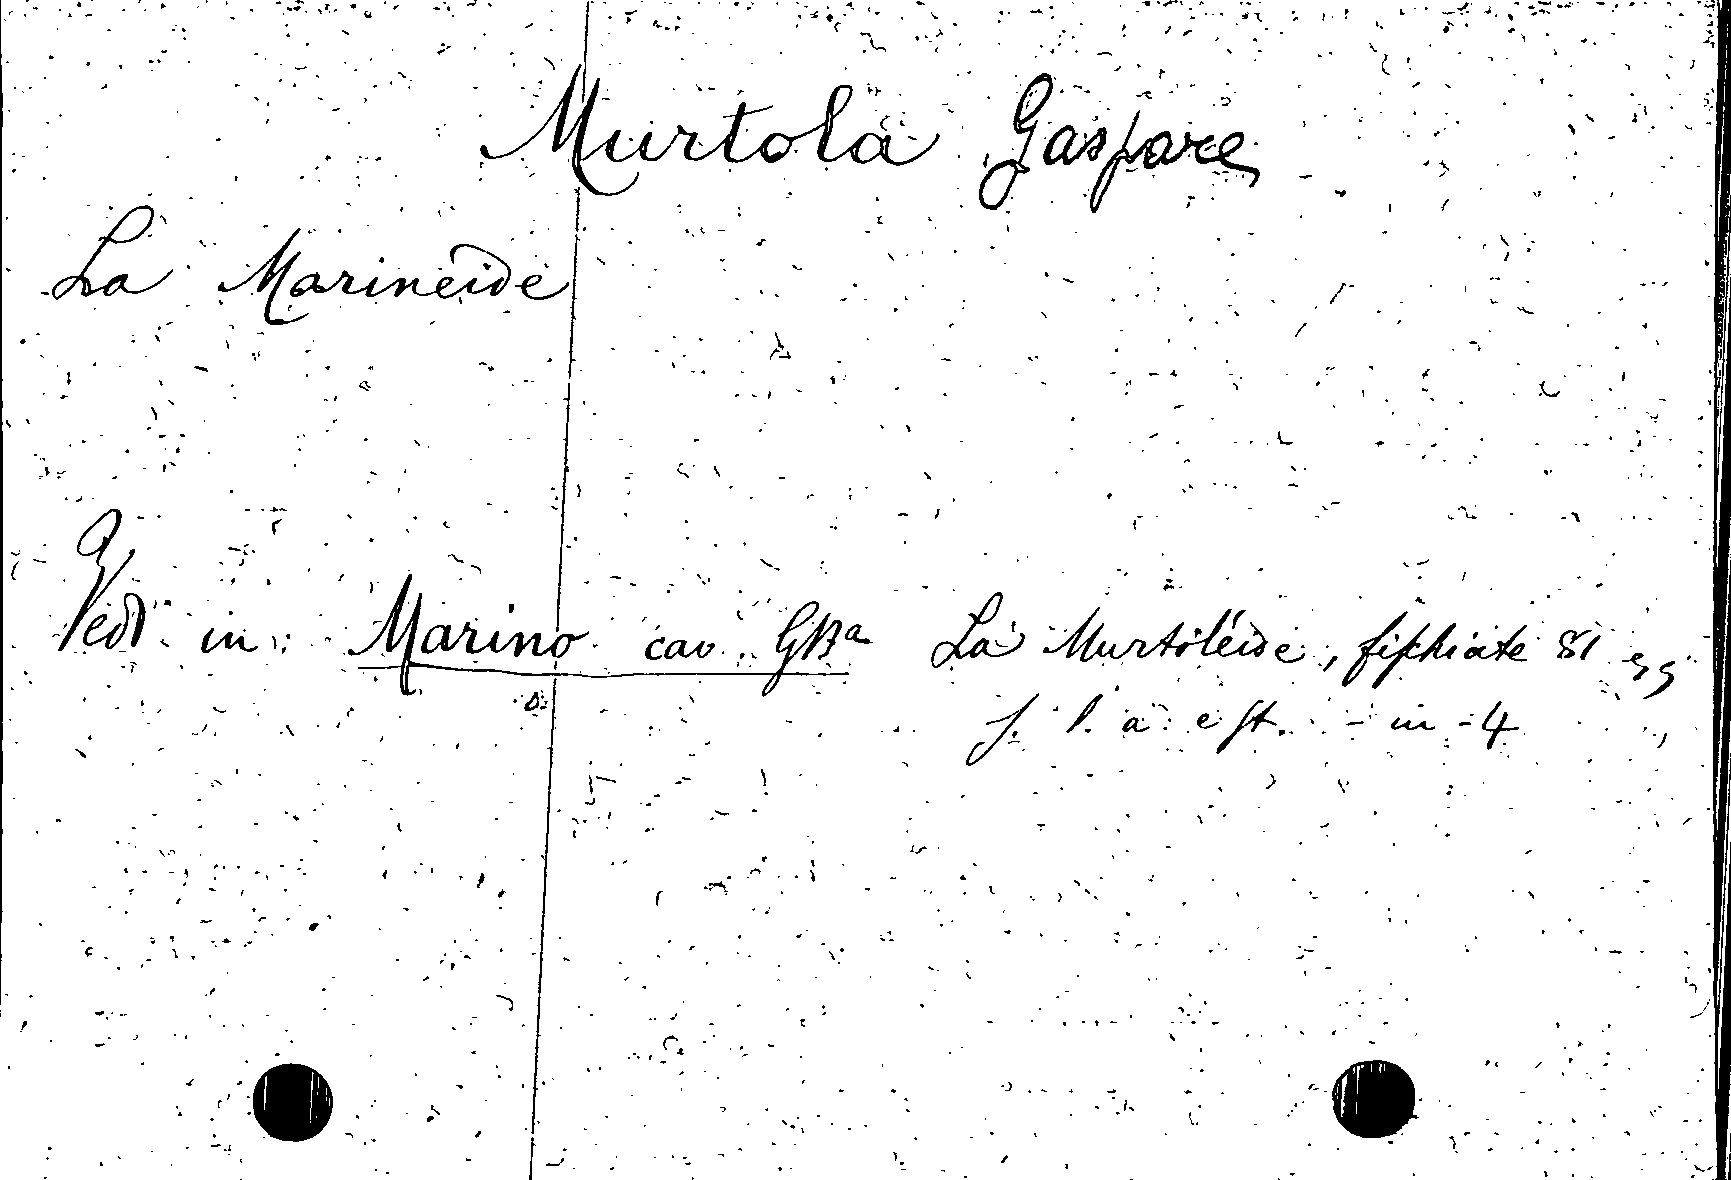 Murtola Gaspare
La Marineide
Vedi in: Marino cav. GBa La Murtoleide, fischiate 81
s. l. a e st. - in - 4